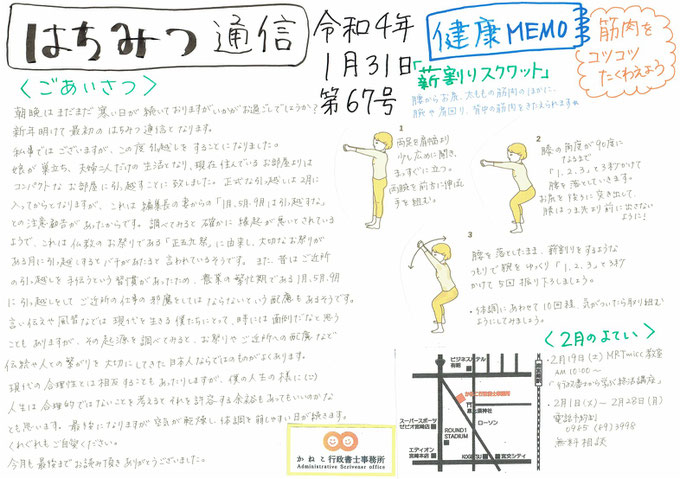 はちみつ通信
令和4年
1月31日
第67号
<ごあいさつ>
朝晩はまだまだ寒い日が続いておりますがいかがお過ごしでしょうか？
新年明けて最初のはちみつ通信となります。
私事ではございますが、この度引越しをすることになりました。
娘が巣立ち、夫婦二人だけの生活となり、現在住んでいるお部屋よりは
コンパクトなお部屋に引っ越すことに致しました。正式な引っ越しは2月に
入ってからとなりますが、これは編集長の妻からの「1月、5月、9月は引っ越すな」
との注意勧告があったからです。調べてみると確かに縁起が悪いとされている
ようで、これは仏教のお祭りである「正五九祭」に由来し、大切なお祭りが
ある月に引っ越しをするとバチがあたると言われているそうです。また、昔はご近所
の引っ越しを手伝うという習慣があったため、農業の繁忙期である1月、5月、9月
に引っ越しをしてご近所の仕事の邪魔をしてはならないという配慮もあるそうです。
言い伝えや風習などは現代を生きる僕たちにとって、時には面倒だなと思う
こともありますが、その起源を調べてみると、お祭りやご近所への配慮など
伝統や人との繋がりを大切にしてきた日本人ならではのものがよくあります。
現代の合理性とは相反することもあったりしますが、僕の人生の様に(^^)
人生は合理的ではないことを考えるとそれを許容する余裕もあってもいいかな
とも思います。最後になりますが空気が乾燥し体調を崩しやすい日が続きます。
くれぐれもご自愛ください。
今月も最後までお読み頂きありがとうございました。
かねこ行政書士事務所
Administrative Scrivener office
健康MEMO
筋肉を
コツコツ
たくわえよう
「薪割りスクワット」
腰からお尻、太ももの筋肉のほかに、
腕や肩回り、背中の筋肉をきたえられます。
1
両足を肩幅より
少し広めに開き、
まっすぐに立つ。
両腕を前方に伸ばし
手を組む。
2
膝の角度が90度に
なるまで
「1、2、3」と3秒かけて
腰を落としていきます。
お尻を後ろに突き出して、
膝はつま先より前に出さない
ように！
3
腰を落としたまま、薪割りをするような
つもりで腕をゆっくり「1、2、3」と3秒
かけて5回振り下ろしましょう。
・体調にあわせて10回程、気がついたら取り組む
ようにしてみましょう。
ビジネスホテル
有明
かねこ行政書士事務所
スーパースポーツ
ゼビオ宮崎店
ローソン
ROUND1
STADIUM
エディオン
宮崎本店
KOGETSU
宮交シティ
<2月のよてい>
・2月19日(土) MRTmicc教室
AM 10:00～
「行政書士から学ぶ終活講座」
・2月1日(火)～2月28日(月)
電話予約制
0985(69)3998
無料相談